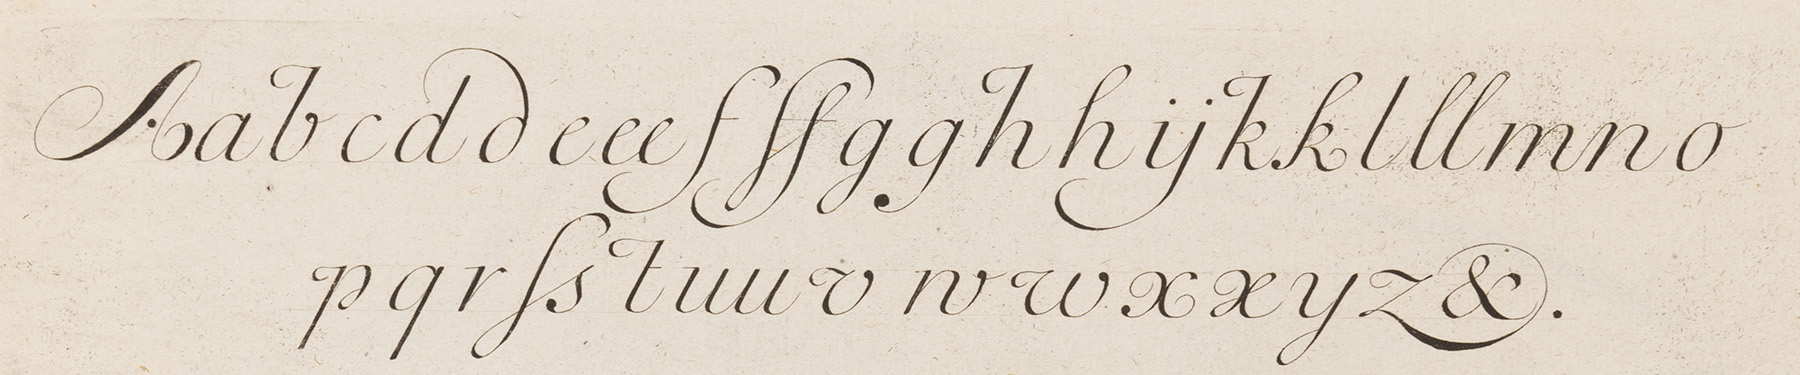 Aabcddeeefffgghhijkklllmno
pqrſstuuvwwxxyz&.